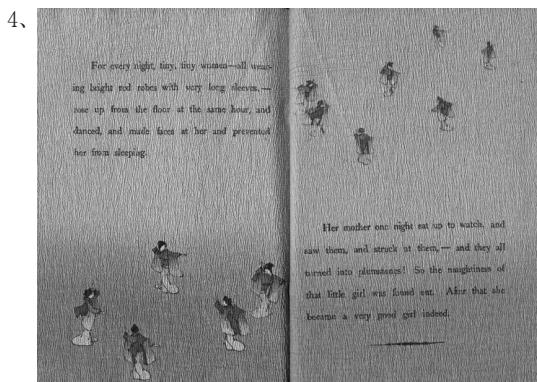 4、
For every night, tiny, tiny women—all wear-
ing bright red robes with very long sleeves,—
rose up from the floor at the same hour, and
danced, and made faces at her and prevented
her from sleeping.
Her mother one night sat up to watch, and
saw them, and struck at them,— and they all
turned into plumstones! So the naughtiness of
that little girl was found out. After that she
became a very good girl indeed.